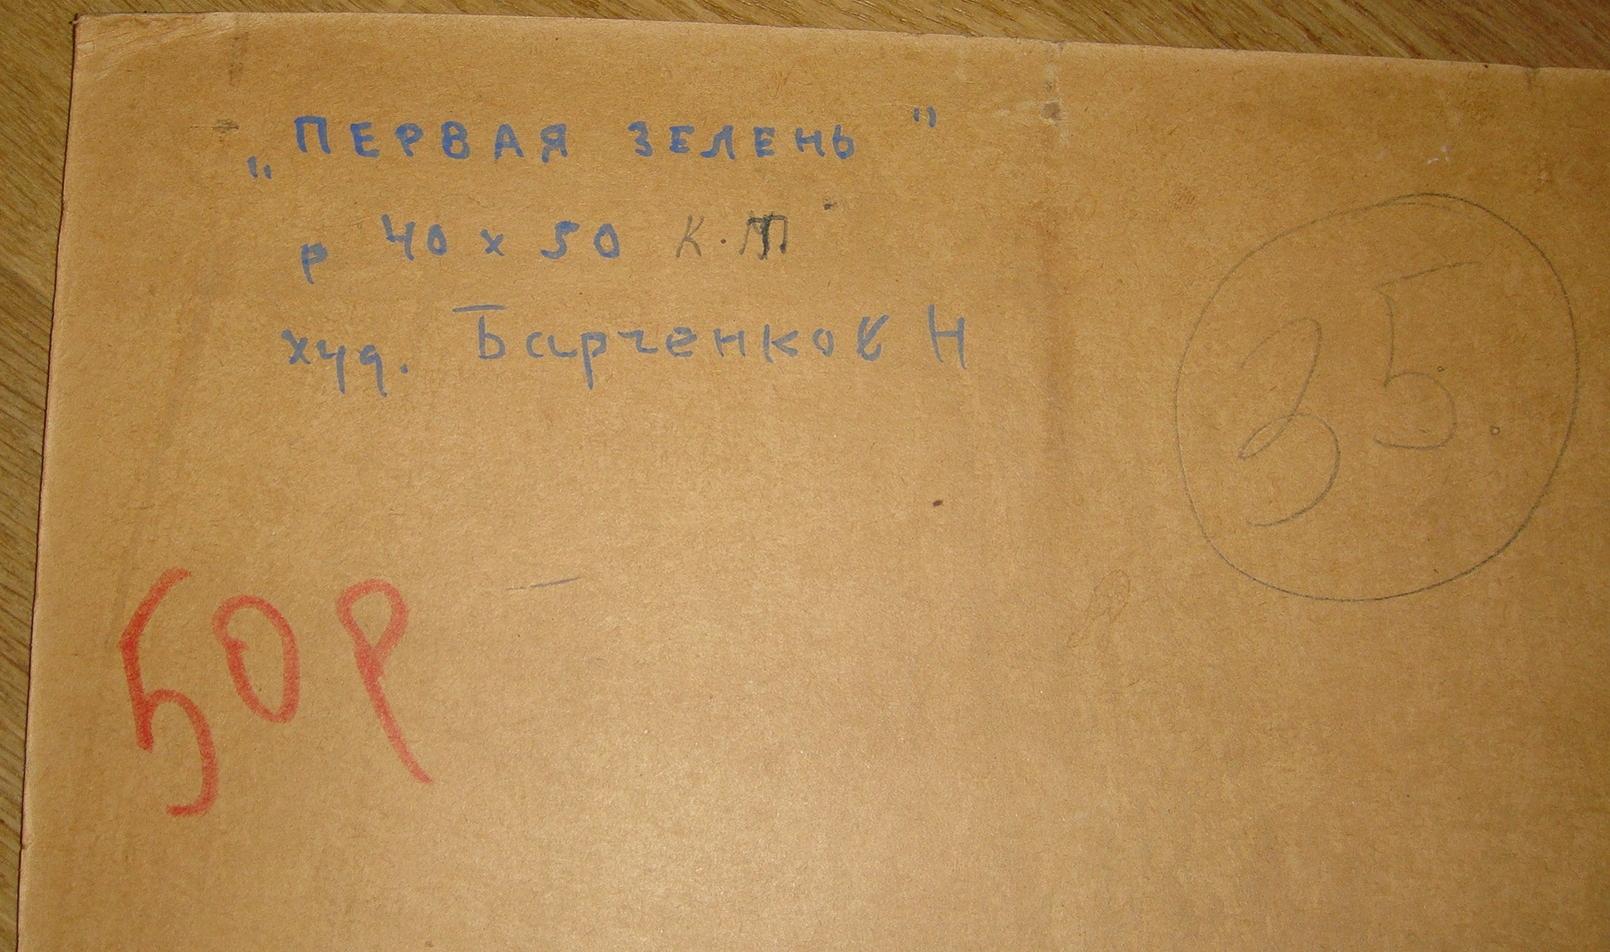 „ПЕРВАЯ ЗЕЛЕНЬ"
р 40 х 50 К.Т
худ. Барченков Н
35.
50 р